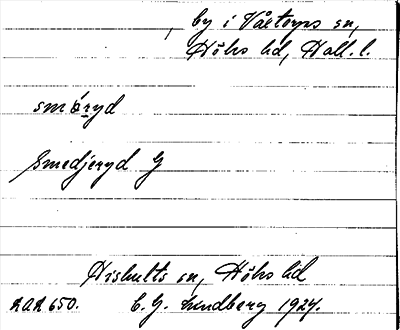 , by i Våxtorps sn,
Höks hd, Hall. l.
smɑ́ryd
Smedjeryd G
Hishults sn, Höks hd
RAÄ 650. C. G. Lundberg 1927.